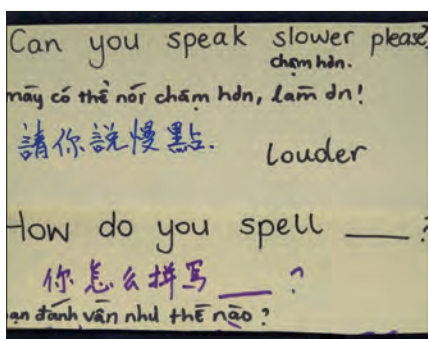 Can you speak slower please?
chậm hơn.
mày có thể nói chậm hơn, làm ơn!
請你說慢點.
Louder
How do you spell ___?
你怎么拼写___?
ạn đánh vần như thế nào?